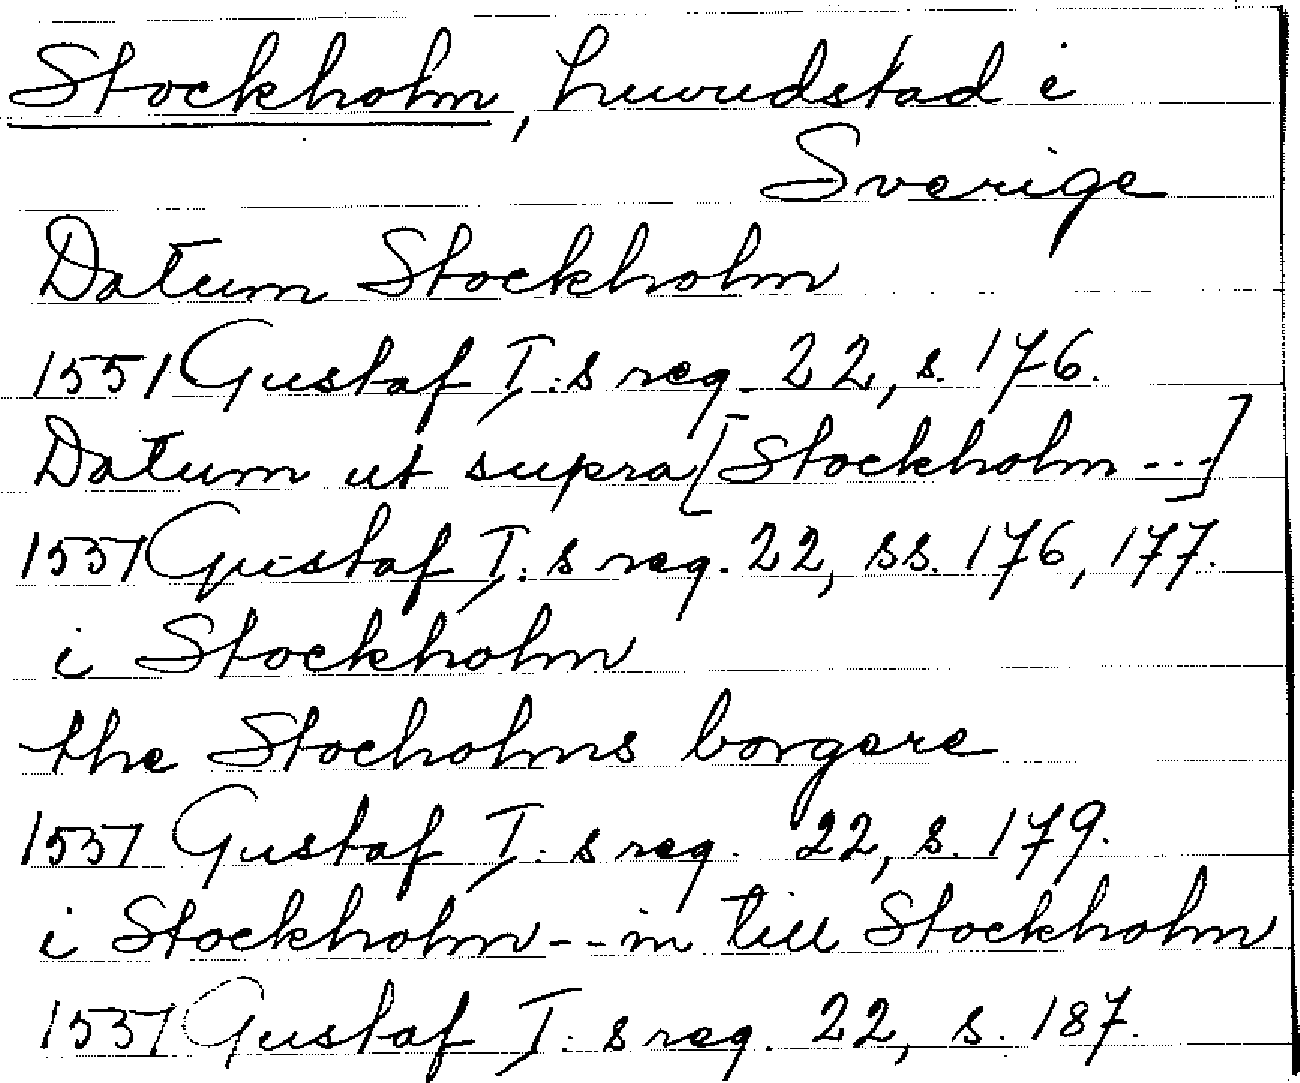 Stockholm, huvudstad i
Sverige
Datum Stockholm
1551 Gustaf I:s reg. 22, s. 176.
Datum ut supra [Stockholm ---]
1551 Gustaf I:s reg. 22, ss. 176, 177.
i Stockholm
the Stocholms borgere
1551 Gustaf I:s reg. 22, s. 179.
i Stockholm -- in till Stockholm
1551 Gustaf I:s reg. 22, s. 187.